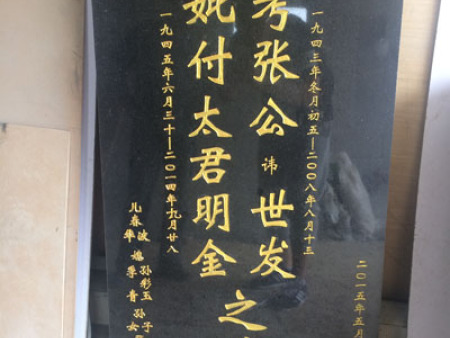 二〇一五年五月
一九四三年冬月初五—二〇〇八年八月十三
考张公讳世发之
妣付太君明金
一九四五年六月三十—二〇一四年九月廿八
儿春波
华
媳孙彩玉
孝青
孙子
女